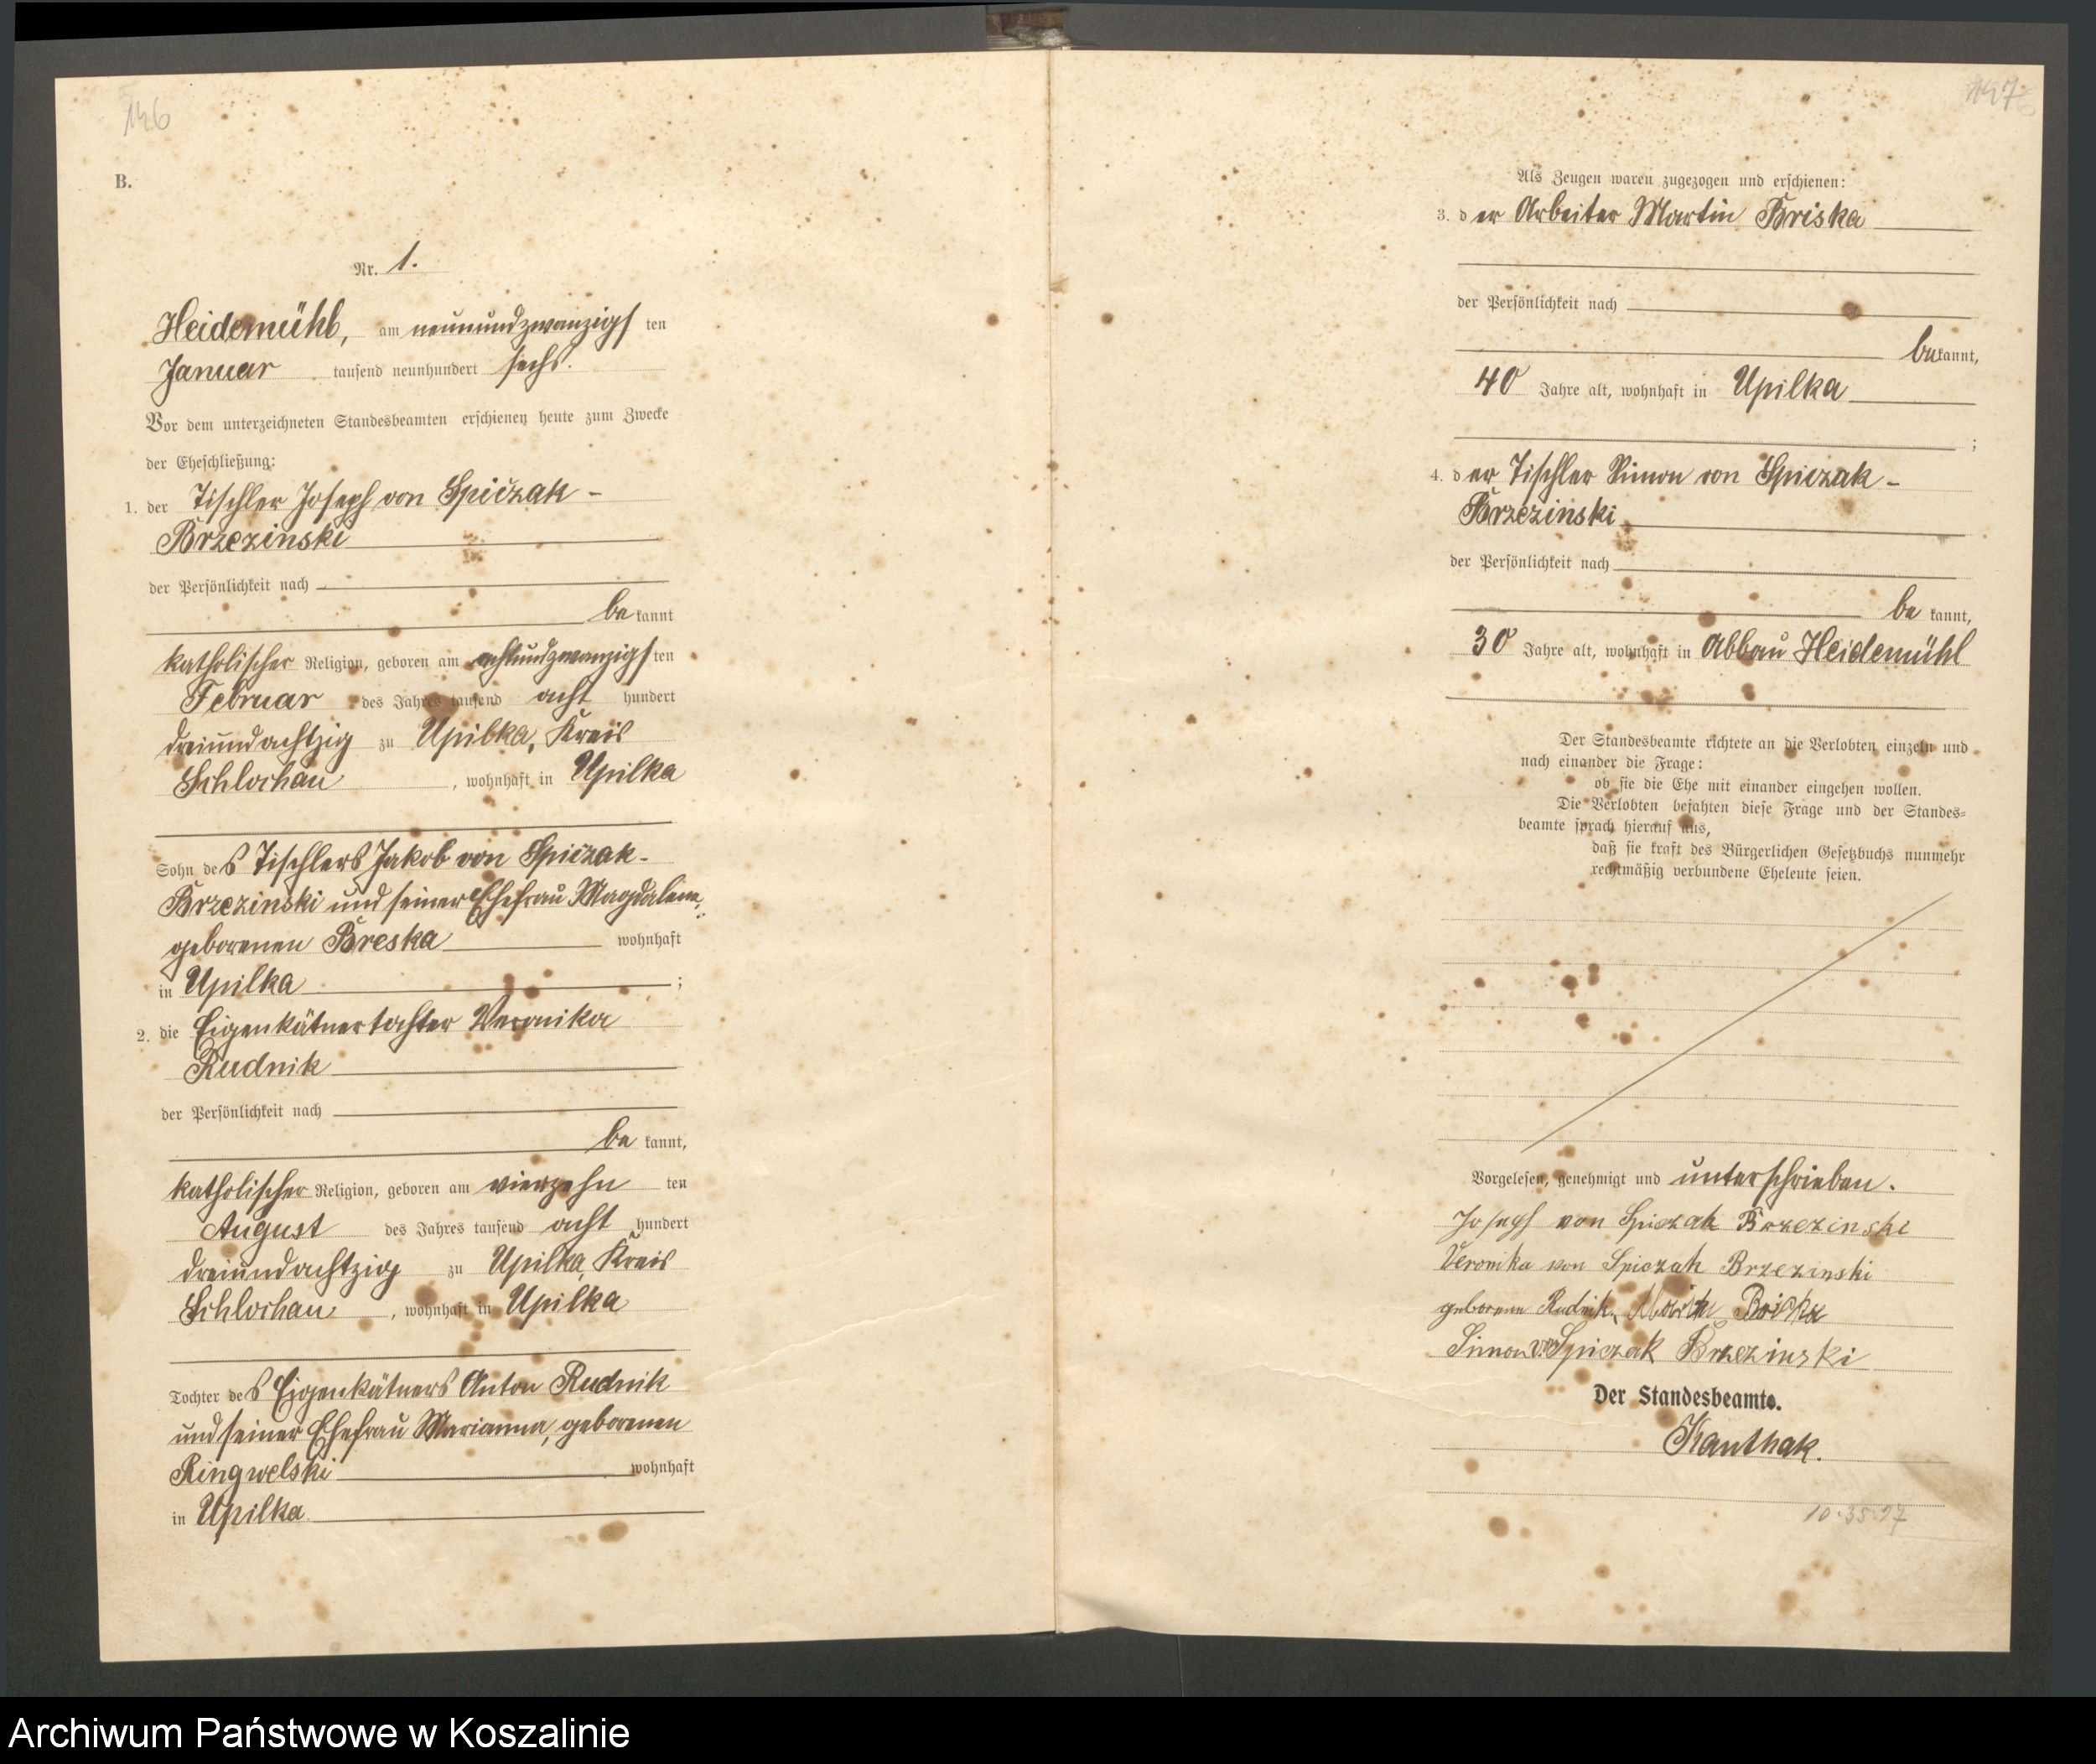 146
B.
Nr. 1.
Heidemühl, am neunundzwanzigsten
Januar tausend neunhundert sechs.
Vor dem unterzeichneten Standesbeamten erschienen heute zum Zwecke
der Eheschließung:
1. der Tischler Joseph von Spiczak-
Brzezinski
der Persönlichkeit nach
be kannt
katholischer Religion, geboren am achtundzwanzigsten
Februar des Jahres tausend acht hundert
dreiundachtzig zu Upilka, Kreis
Schlochau, wohnhaft in Upilka
Sohn des Tischlers Jakob von Spiczak-
Brzezinski und seiner Ehefrau Magdalena,
geborenen Breska wohnhaft
in Upilka ;
2. die Eigenkätnertochter Veronika
Rudnik
der Persönlichkeit nach
be kannt,
katholischer Religion, geboren am vierzehn ten
August des Jahres tausend acht hundert
dreiundachtzig zu Upilka, Kreis
Schlochau, wohnhaft in Upilka
Tochter des Eigenkätners Anton Rudnik
und seiner Ehefrau Marianna, geborenen
Ringwelski wohnhaft
in Upilka
147
Als Zeugen waren zugezogen und erschienen:
3. der Arbeiter Martin Briska
der Persönlichkeit nach
bekannt,
40 Jahre alt, wohnhaft in Upilka
;
4. der Tischler Simon von Spiczak-
Brzezinski
der Persönlichkeit nach
be kannt,
30 Jahre alt, wohnhaft in Abbau Heidemühl
Der Standesbeamte richtete an die Verlobten einzeln und
nach einander die Frage:
ob sie die Ehe mit einander eingehen wollen.
Die Verlobten bejahten diese Frage und der Standes=
beamte sprach hierauf aus,
daß sie kraft des Bürgerlichen Gesetzbuchs nunmehr
rechtmäßig verbundene Eheleute seien.
Vorgelesen, genehmigt und unterschrieben.
Joseph von Spiczak Brzezinski
Veronika von Spiczak Brzezinski
geborene Rudnik. Martin Briska
Simon von Spiczak Brzezinski
Der Standesbeamte.
Kanthak.
10.35.97
Archiwum Państwowe w Koszalinie